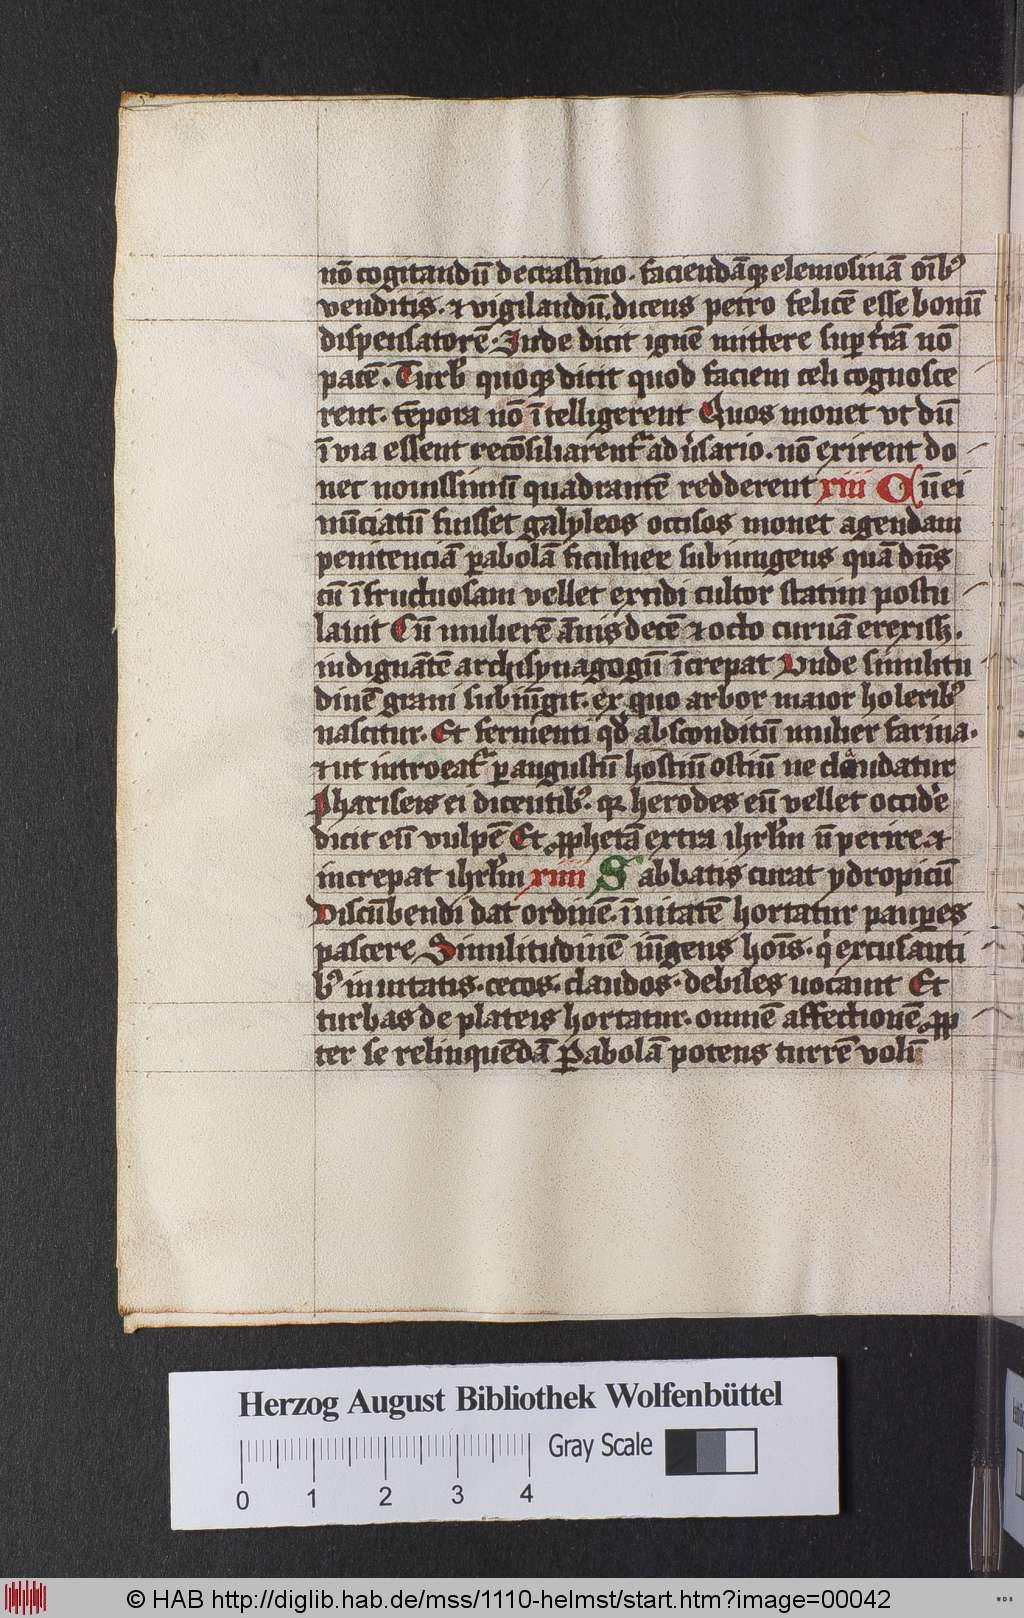 nō cogitandū de crastino. faciendāqꝫ elemosinā oīb᷒
venditis. ⁊ vigilandū. dicens petro felicē esse bonū
dispensatorē. Inde dicit ignē mittere suꝑ t̓rā nō
pacē. Turb᷒ quoqꝫ dicit quod faciem celi cognosce
rent. tēpora nō ītelligerent Quos monet vt dū
ī via essent recōsiliarent᷑ adu̓sario. nō exirent do
nec nouissimū quadrantē redderent xiii Cū ei
nūciatū fuisset galyleos occisos monet agendam
penitenciā ꝑabolā ficulnee subiungens quā dn̄s
cū īfructuosam vellet excidi cultor statim postu
lauit Cū mulierē ānis decē ⁊ octo curuā erexissꝫ.
indignātē archisynagogū īcrepat Unde similitu
dinē grani subiūgit. ex quo arbor maior holerib᷒
nascitur. Et fermenti qd̓ absconditū mulier farina.
⁊ ut introeāt᷑ ꝑ angustū hostiū ostiū ne claudatur
Phariseis ei dicentib᷒. qꝛ herodes eū vellet occid̓e
dicit eū vulpē Et ꝓphetā extra ihrl̄m n̄ perire. ⁊
increpat ihrl̄m xiiii Sabbatis curat ydropicū
Discūbendi dat ordinē. īuitatē hortatur pauꝑes
pascere Similitudinē iūgens hoīs. qͥ excusanti
b᷒ inuitatis. cecos. claudos. debiles uocauit Et
turbas de plateis hortatur. omnē affectionē ꝓp
ter se relinquēdā Parabolā potens turrē volū
Herzog August Bibliothek Wolfenbüttel
0 1 2 3 4
Gray Scale
© HAB http://diglib.hab.de/mss/1110-helmst/start.htm?image=00042